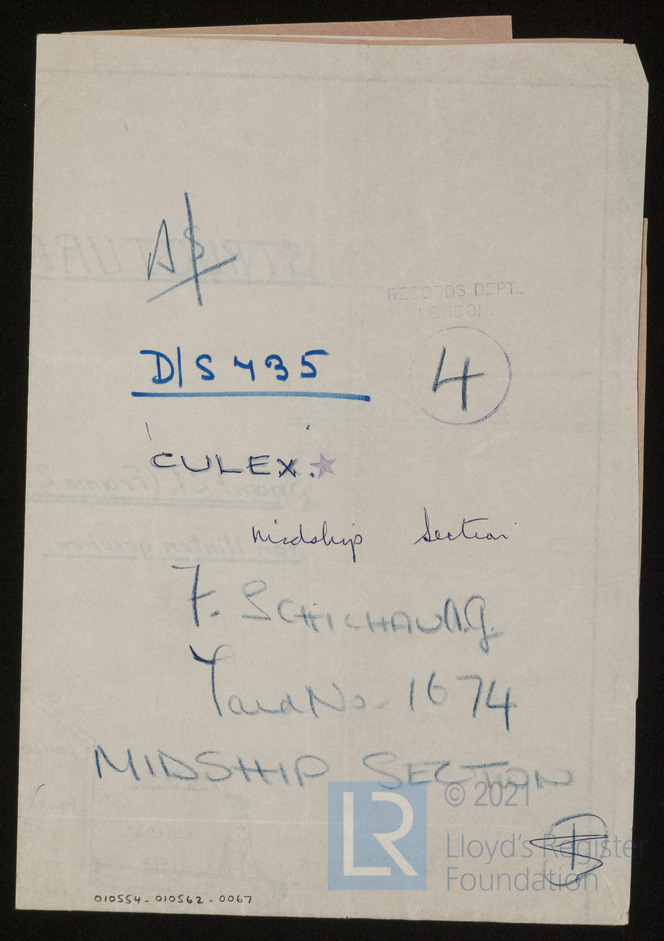 A/S
RECORDS DEPT.,
LONDON.
4
D/S 435
'CULEX'.
Midship Section
F. SCHICHAU A.G.
Yard No. 1674
MIDSHIP SECTION
LR
© 2021
Lloyd's Register
Foundation
010554-010562-0067